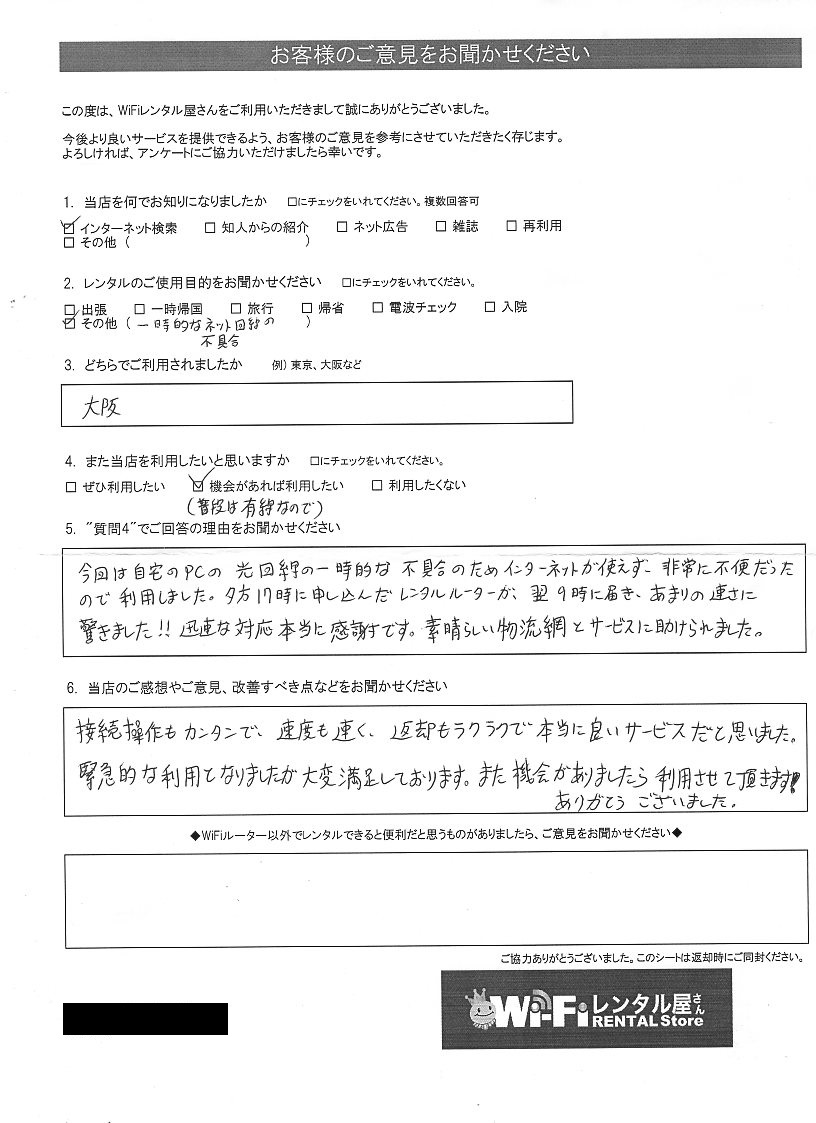 お客様のご意見をお聞かせください
この度は、WiFiレンタル屋さんをご利用いただきまして誠にありがとうございました。
今後より良いサービスを提供できるよう、お客様のご意見を参考にさせていただきたく存じます。
よろしければ、アンケートにご協力いただけましたら幸いです。
1. 当店を何でお知りになりましたか □にチェックをいれてください。複数回答可
☑ インターネット検索 □ 知人からの紹介 □ ネット広告 □ 雑誌 □ 再利用
□ その他 ( )
2. レンタルのご使用目的をお聞かせください □にチェックをいれてください。
□ 出張 □ 一時帰国 □ 旅行 □ 帰省 □ 電波チェック □ 入院
☑ その他 ( 一時的なネット回線の )
不具合
3. どちらでご利用されましたか 例) 東京、大阪など
大阪
4. また当店を利用したいと思いますか □にチェックをいれてください。
□ ぜひ利用したい ☑ 機会があれば利用したい □ 利用したくない
(普段は有線なので)
5. "質問4"でご回答の理由をお聞かせください
今回は自宅のPCの光回線の一時的な不具合のためインターネットが使えず、非常に不便だった
ので利用しました。夕方17時に申し込んだレンタルルーターが、翌9時に届き、あまりの速さに
驚きました!! 迅速な対応本当に感謝です。素晴らしい物流網とサービスに助けられました。
6. 当店のご感想やご意見、改善すべき点などをお聞かせください
接続操作もカンタンで、速度も速く、返却もラクラクで本当に良いサービスだと思いました。
緊急的な利用となりましたが大変満足しております。また機会がありましたら利用させて頂きます!
ありがとうございました。
◆WiFiルーター以外でレンタルできると便利だと思うものがありましたら、ご意見をお聞かせください◆
ご協力ありがとうございました。このシートは返却時にご同封ください。
Wi-Fiレンタル屋さん
RENTAL Store